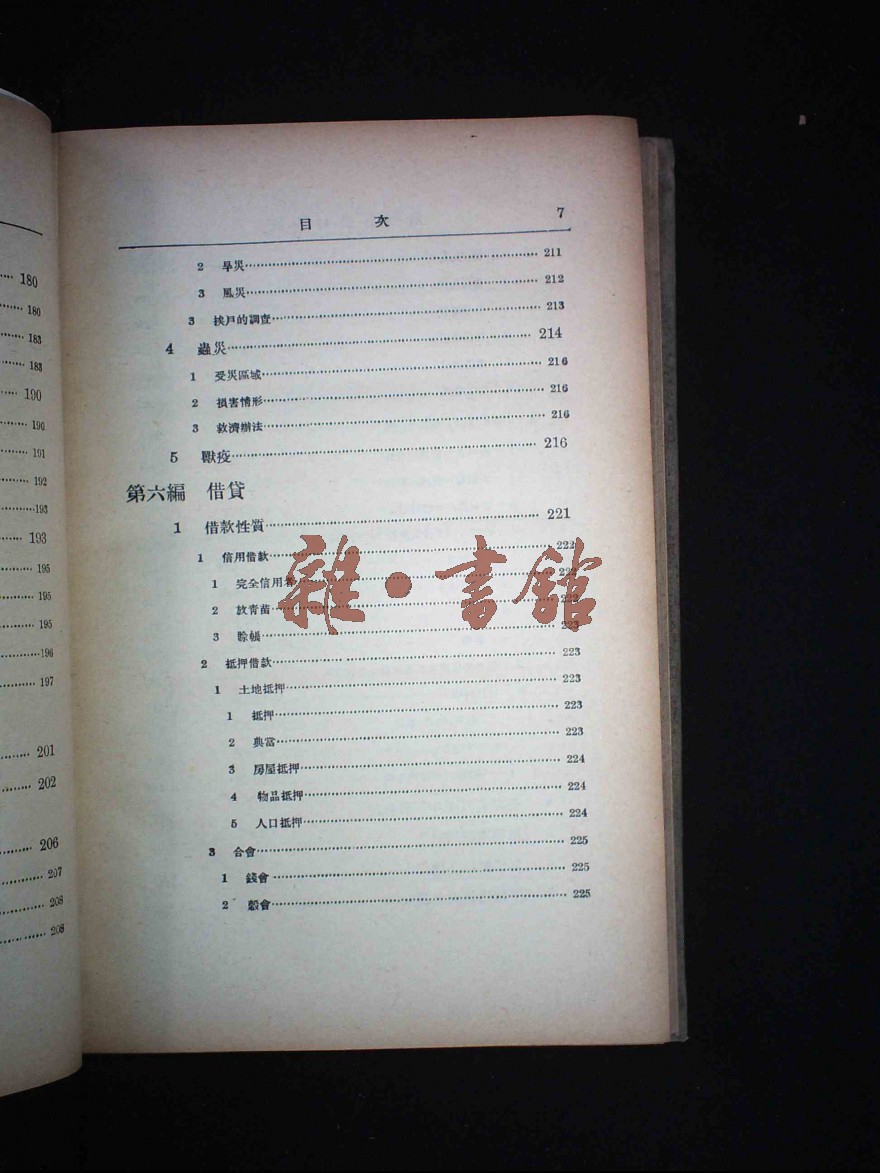 180
180
183
183
190
190
191
192
193
193
195
195
195
196
197
201
202
206
207
208
208
目 次 7
2 旱災 211
3 風災 212
3 挨戶的調查 213
4 蟲災 214
1 受災區域 216
2 損害情形 216
3 救濟辦法 216
5 獸疫 216
第六編 借貸
1 借款性質 221
1 信用借款 222
1 完全信用者 222
2 放青苗 223
3 賒帳 223
2 抵押借款 223
1 土地抵押 223
1 抵押 223
2 典當 223
3 房屋抵押 224
4 物品抵押 224
5 人口抵押 224
3 合會 225
1 錢會 225
2 穀會 225
雜·書館